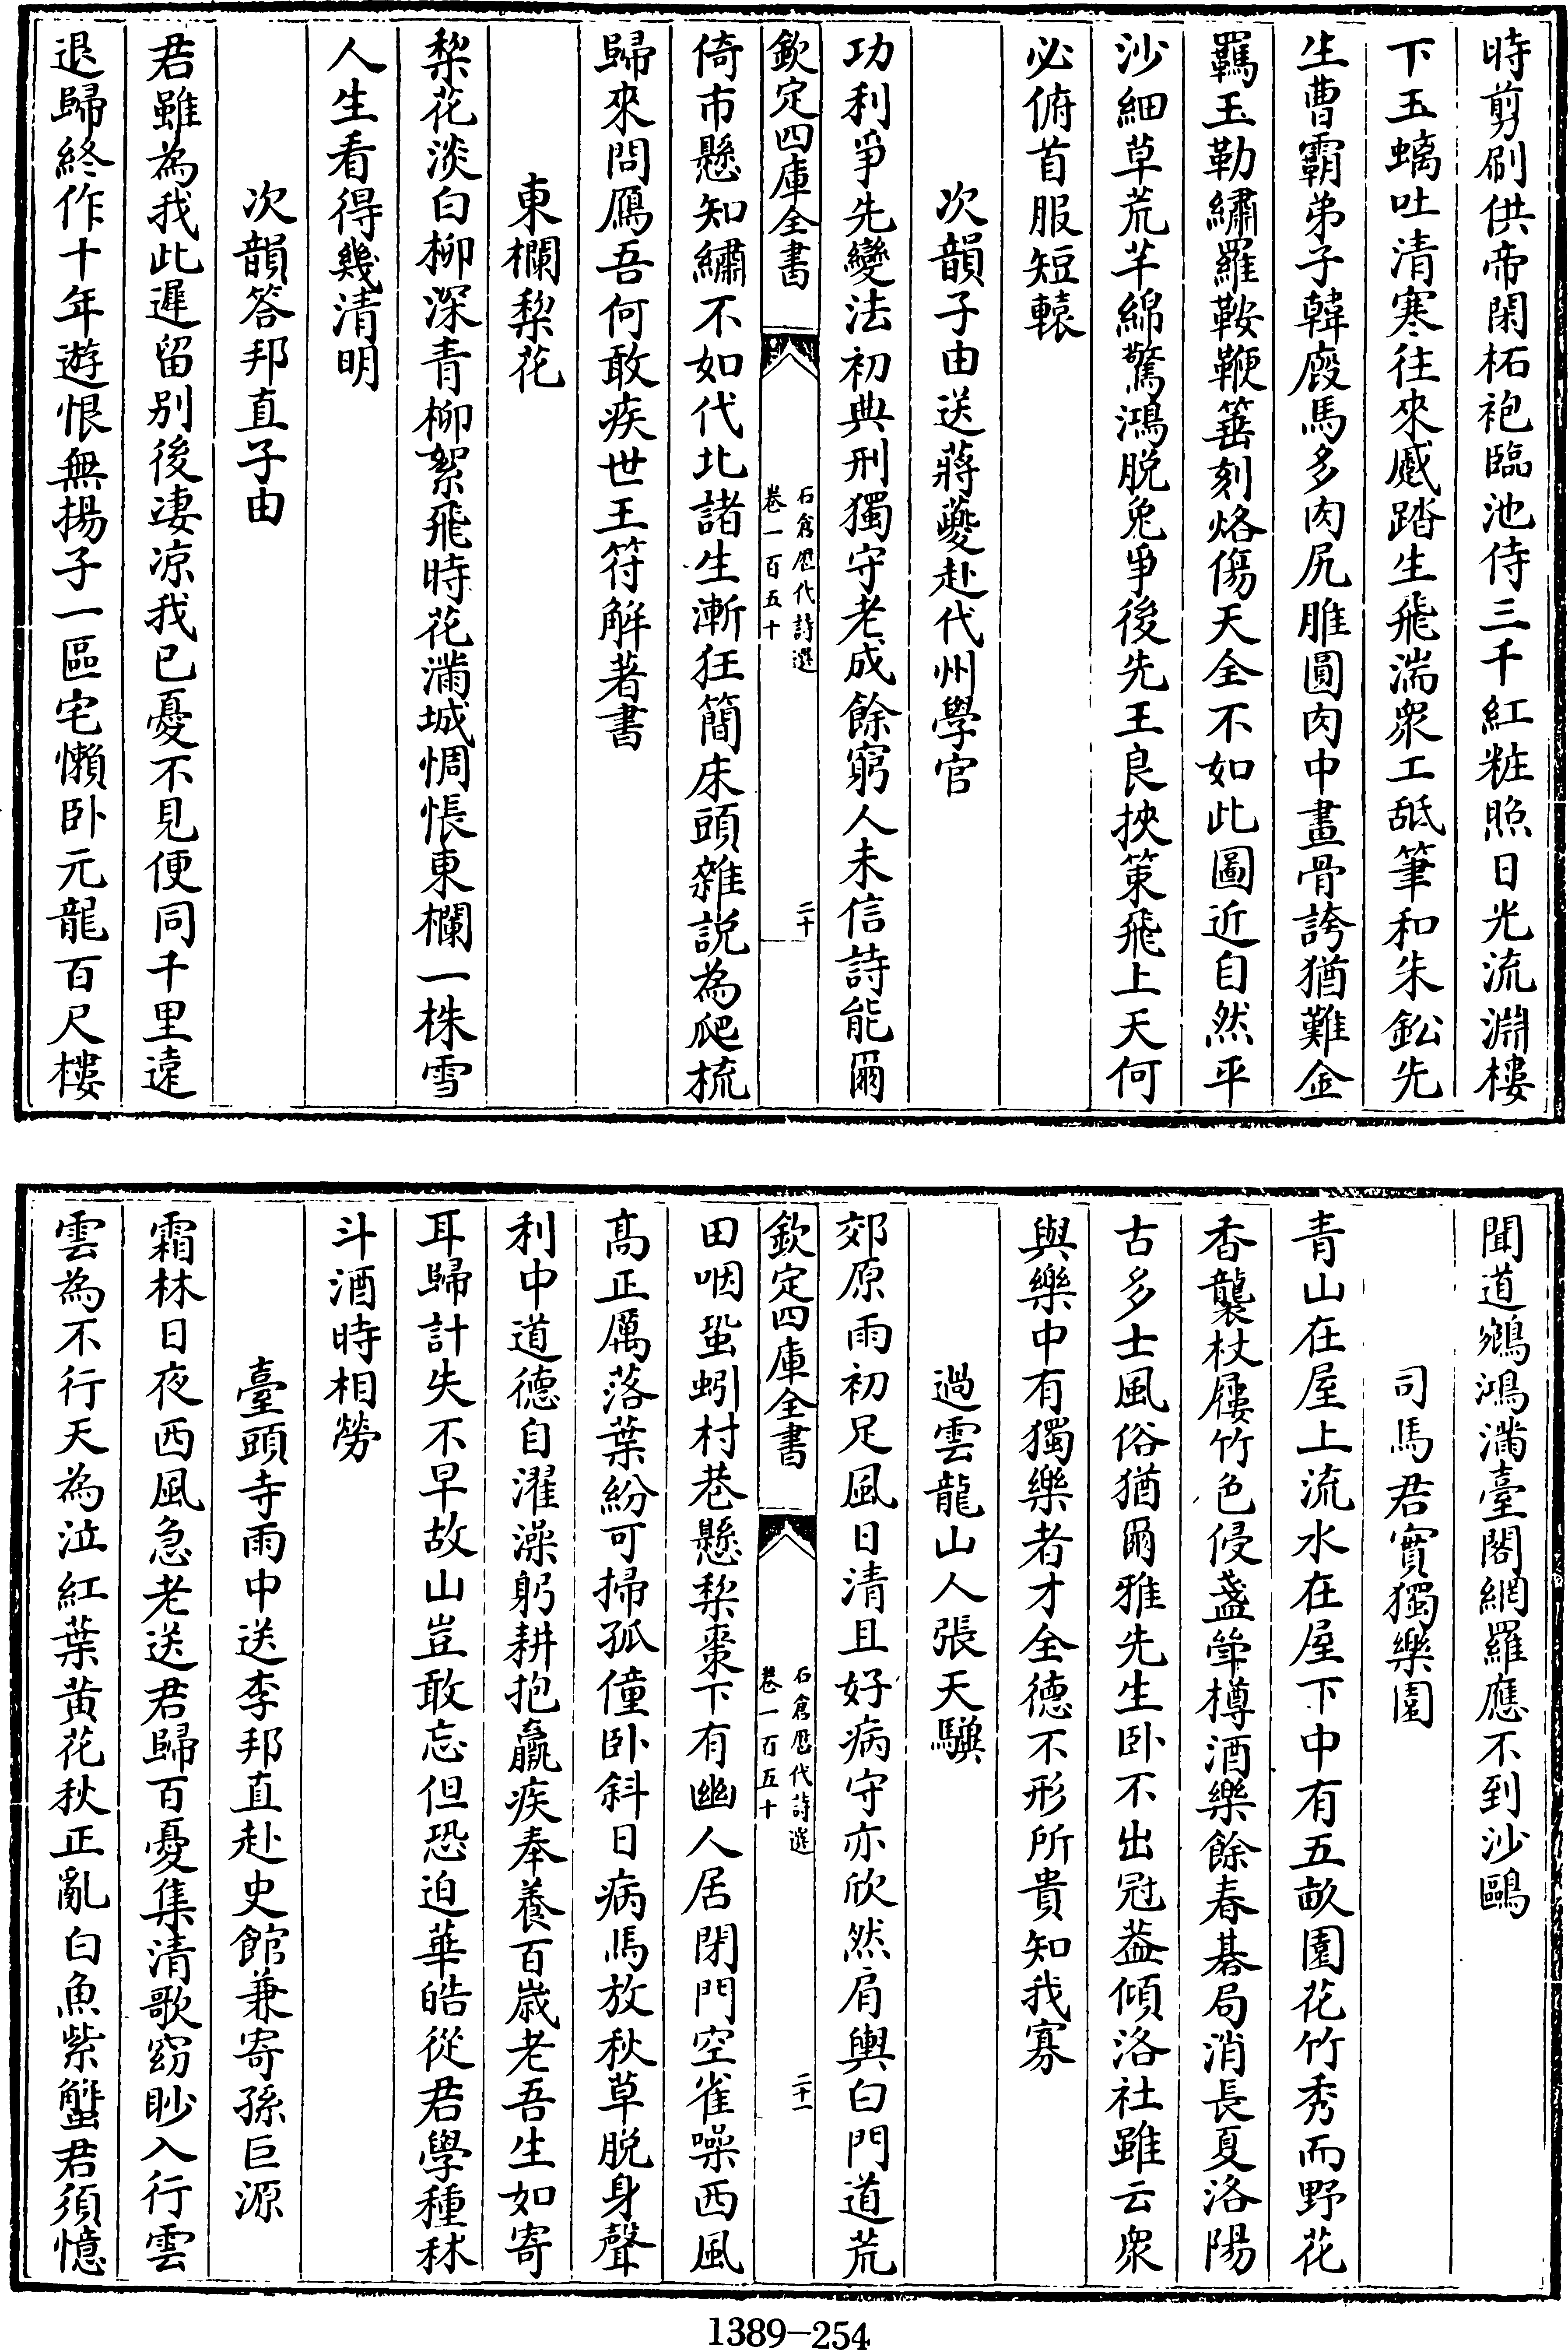 時剪刷供帝閑柘袍臨池侍三千紅粧照日光流淵樓
下玉螭吐清寒往來蹙踏生飛湍衆工舐筆和朱鈆先
生曹霸弟子韓廐馬多肉尻脽圓肉中畫骨誇猶難金
羈玉勒繡羅鞍鞭箠刻烙傷天全不如此圖近自然平
沙細草荒芊綿驚鴻脱兔爭後先王良挾策飛上天何
必俯首服短轅
次韻子由送蔣夔赴代州學官
功利爭先變法初典刑獨守老成餘窮人未信詩能爾
欽定四庫全書
石倉歷代詩選
卷一百五十
二十
倚市懸知繡不如代北諸生漸狂簡床頭雜説為爬梳
歸來問鴈吾何敢疾世王符解著書
東欄梨花
梨花淡白柳深青柳絮飛時花滿城惆悵東欄一株雪
人生看得幾清明
次韻答邦直子由
君雖為我此遲留别後凄凉我已憂不見便同千里遠
退歸終作十年遊恨無揚子一區宅懶卧元龍百尺樓
聞道鵷鴻滿臺閣網羅應不到沙鷗
司馬君實獨樂園
青山在屋上流水在屋下中有五畝園花竹秀而野花
香襲杖屨竹色侵盞斝樽酒樂餘春碁局消長夏洛陽
古多士風俗猶爾雅先生卧不出冠葢傾洛社雖云衆
與樂中有獨樂者才全德不形所貴知我寡
過雲龍山人張天驥
郊原雨初足風日清且好病守亦欣然肩輿白門道荒
欽定四庫全書
石倉歷代詩選
卷一百五十
二十一
田咽蛩蚓村巷懸梨棗下有幽人居閉門空雀噪西風
髙正厲落葉紛可掃孤僮卧斜日病馬放秋草脱身聲
利中道德自濯澡躬耕抱羸疾奉養百歲老吾生如寄
耳歸計失不早故山豈敢忘但恐迫華皓從君學種秫
斗酒時相勞
臺頭寺雨中送李邦直赴史館兼寄孫巨源
霜林日夜西風急老送君歸百憂集清歌窈眇入行雲
雲為不行天為泣紅葉黄花秋正亂白魚紫蟹君須憶
1389-254